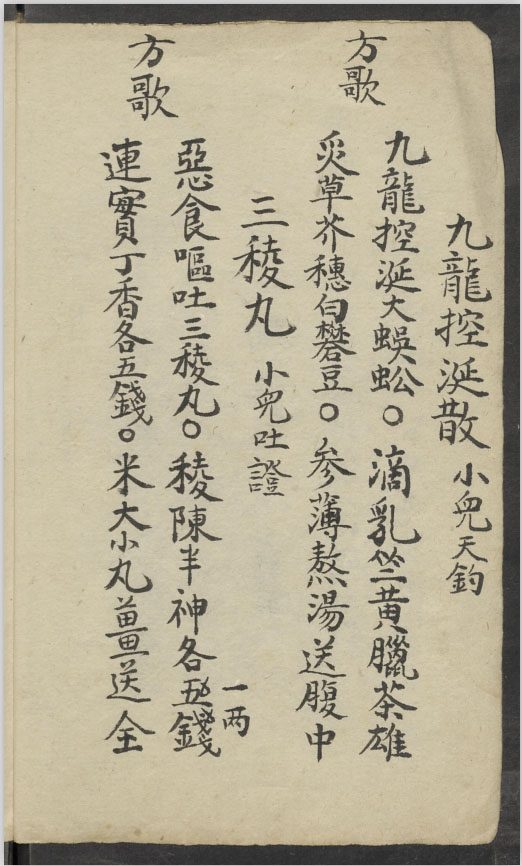 九龍控涎散 小兒天釣
方歌 九龍控涎大蜈蚣○滴乳竺黃臘茶雄
炙草芥穗白礬豆○參薄熬湯送腹中
三稜丸 小兒吐證
惡食嘔吐三稜丸○稜陳半神各五錢 一両
方歌 連實丁香各五錢○米大小丸薑送全